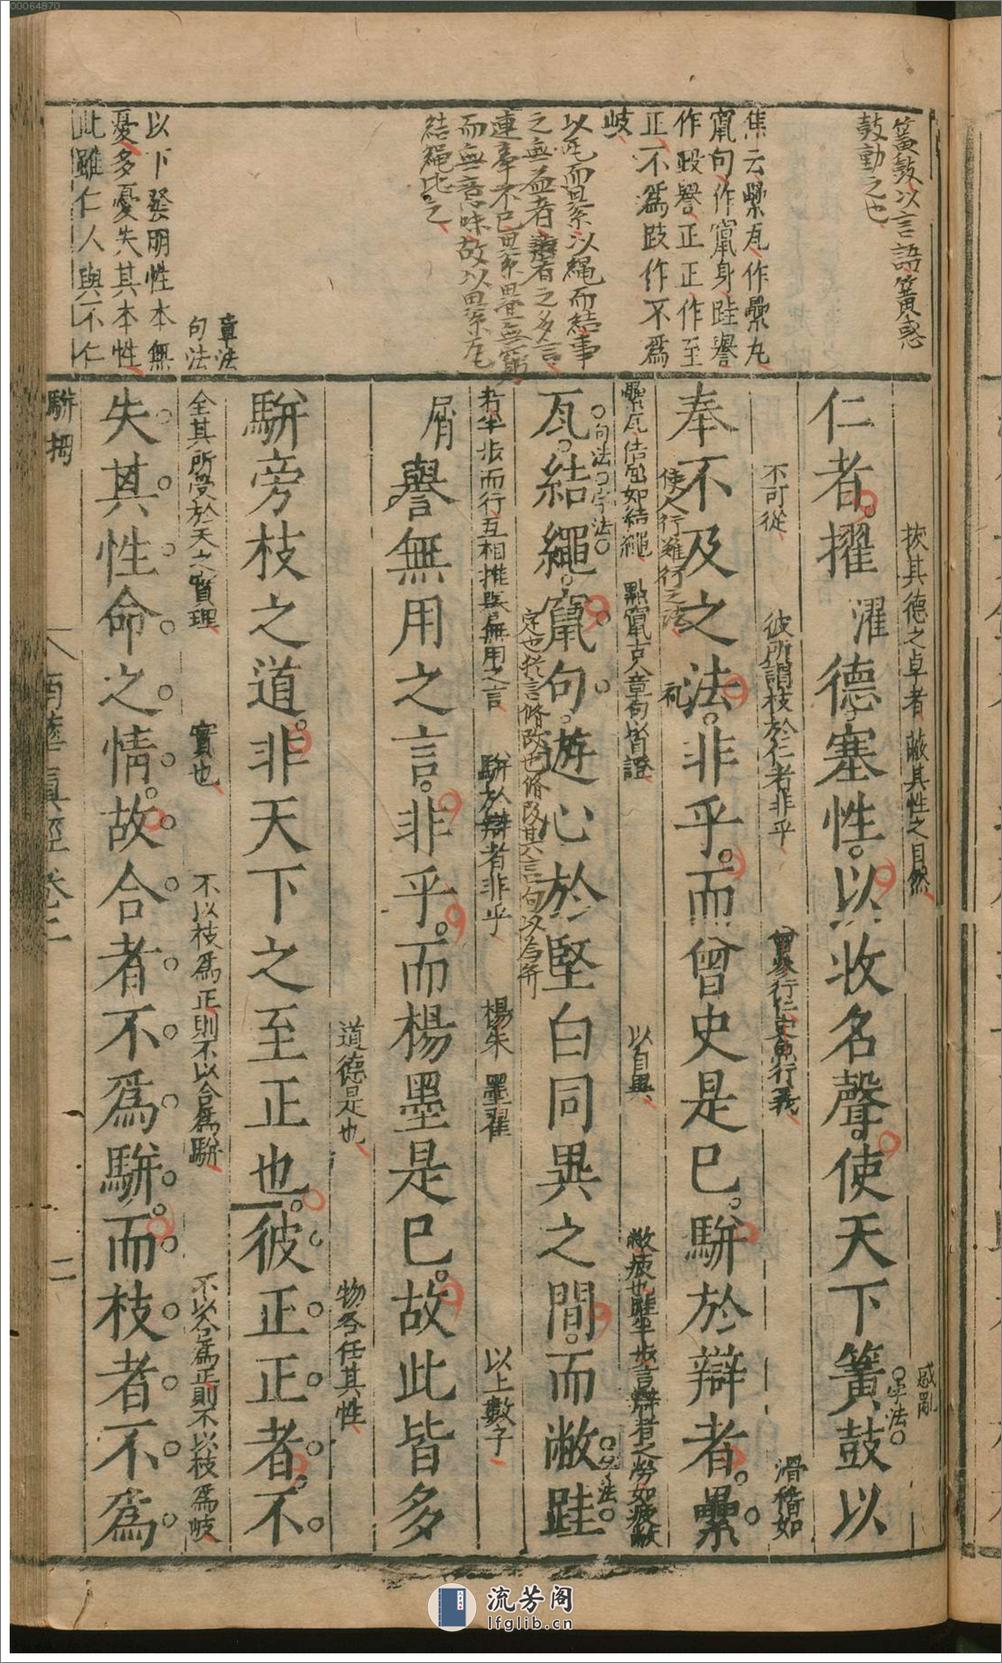 00064870
簧鼓以言語簧惑
鼓動之也
焦云纍瓦作纍丸
竄句作竄身跬譽
作毀譽正正作至
正不為跂作不為
岐
以瓦而累以繩而結事
之無益者辯者之多言
連章不已累疊無窮
而無意味故以累瓦
結繩比之
章法
句法
以下發明性本無
憂多憂失其本性
此雖仁人與不仁
挾其德之卓者
蔽其性之自然
惑亂
字法
仁者擢濯德塞性以收名聲使天下簧鼓以
不可從
彼所謂枝於仁者非乎
曾參行仁史魚行義
滑稽如
奉不及之法非乎而曾史是巳駢於辯者纍
使人行難行之法
纍瓦結句如結繩
點竄古人章句以自證
以自異
敝疲也跬半步言辯者之勞如疲敝
句法
字法
瓦結繩竄句遊心於堅白同異之間而敝跬
者半步而行互相推跌無用之言
駢於辯者非乎
楊朱
墨翟
以上數子
屑譽無用之言非乎而楊墨是巳故此皆多
道德是也
物各任其性
駢旁枝之道非天下之至正也彼正正者不
全其所受於天之實理
實也
不以枝為正則不以合為駢
不以合為正則不以枝為岐
失其性命之情故合者不為駢而枝者不為
駢拇
南華真經卷二
二
流芳阁
lfglib.cn